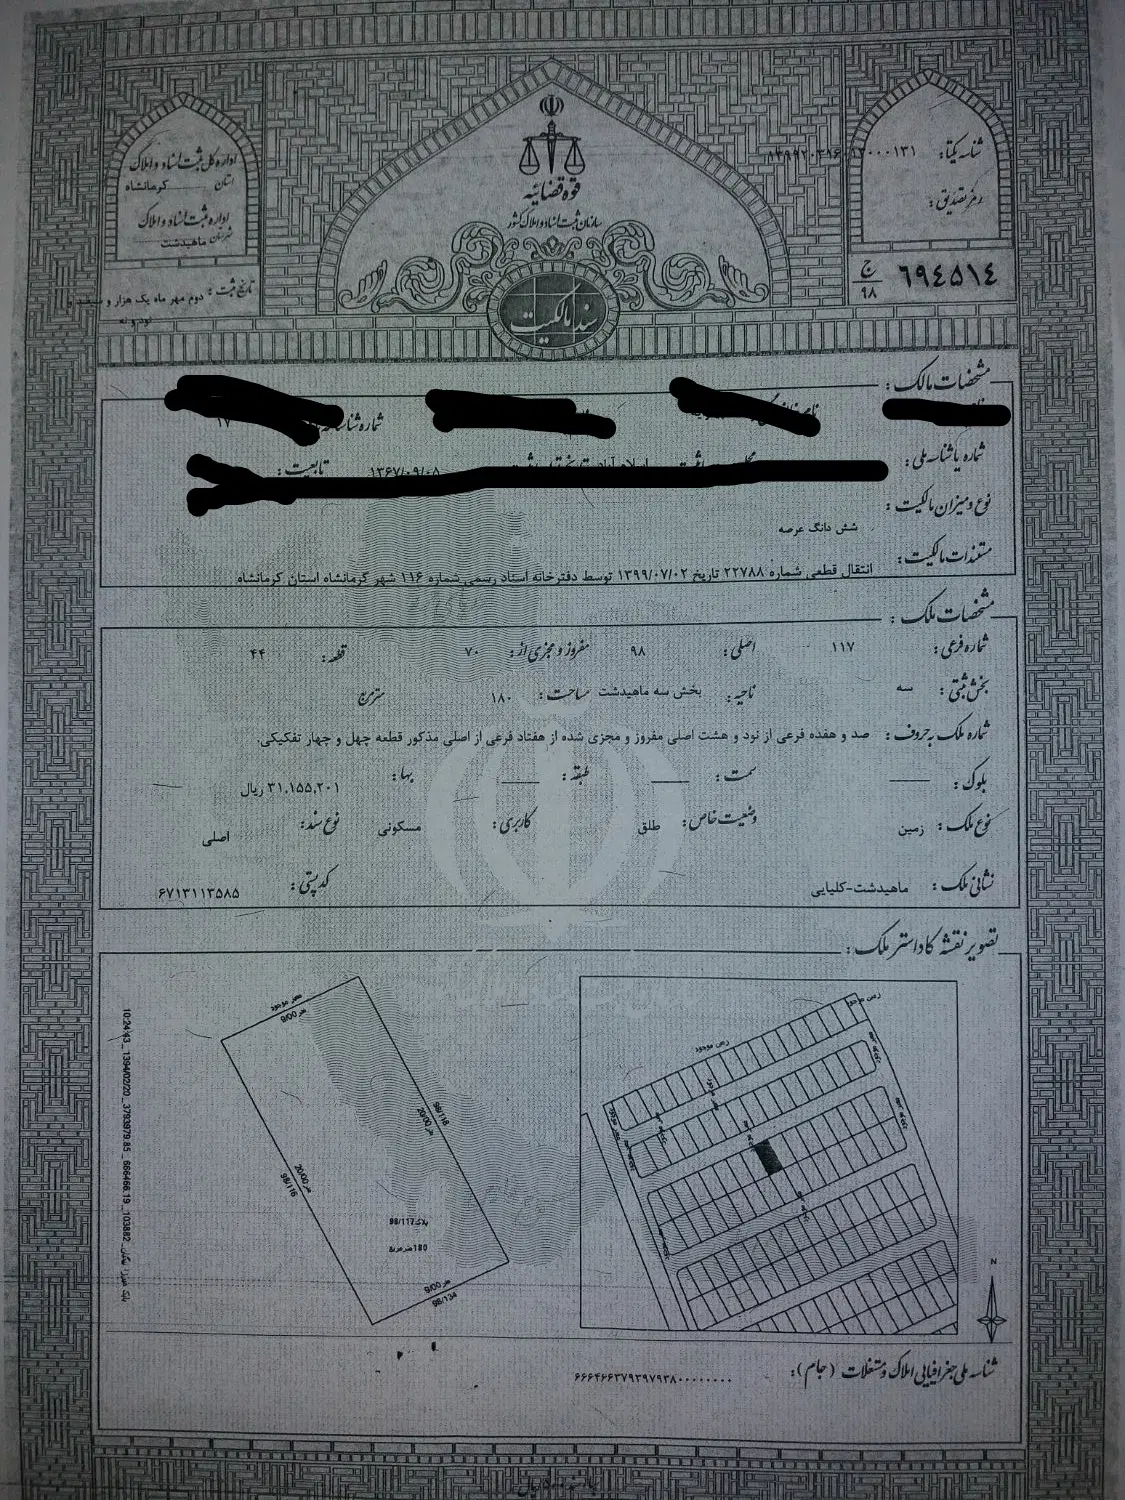 قوه قضائیه
سازمان ثبت اسناد و املاک کشور
سند مالکیت
شناسه یکتا:
رمز تصدیق:
ج
۹۸
۶۹۴۵۱۴
اداره کل ثبت اسناد و املاک
استان کرمانشاه
اداره ثبت اسناد و املاک
شهرستان ماهیدشت
تاریخ ثبت: دوم مهر ماه یک هزار و
نود و نه
مشخصات مالک:
شماره
شماره یا شناسه ملی:
اسلام آباد
۱۳۶۷/۰۹/۰۸ تابعیت:
نوع و میزان مالکیت:
شش دانگ عرصه
مستندات مالکیت: انتقال قطعی شماره ۲۲۷۸۸ تاریخ ۱۳۹۹/۰۷/۰۲ توسط دفترخانه اسناد رسمی شماره ۱۱۶ شهر کرمانشاه استان کرمانشاه
مشخصات ملک:
شماره فرعی: ۱۱۷ اصلی: ۹۸ مفروز و مجزی از: ۷۰ قطعه: ۴۴
بخش ثبتی: سه ناحیه: بخش سه ماهیدشت مساحت: ۱۸۰ مترمربع
شماره ملک به حروف: صد و هفده فرعی از نود و هشت اصلی مفروز و مجزی شده از هفتاد فرعی از اصلی مذکور قطعه چهل و چهار تفکیکی.
بلوک: سمت: طبقه: بها: ۳۱.۱۵۵.۲۰۱ ریال
نوع ملک: زمین وضعیت خاص: طلق کاربری: مسکونی نوع سند: اصلی
نشانی ملک: ماهیدشت-کلیایی کد پستی: ۶۷۱۳۱۱۳۵۸۵
تصویر نقشه کاداستر ملک:
معبر موجود
9/00 متر
98/118
20/00 متر
20/00 متر
98/116
پلاک 98/117
180 مترمربع
9/00 متر
98/134
10:24:43 _ 1394/02/20 _ 3793979.85 _ 666466.19 _ 103882
زمین موجود
N
شناسه ملی جغرافیایی املاک و مستغلات (جام): ۶۶۶۴۶۶۳۷۹۳۹۷۹۳۸۰۰۰۰۰۰۰۰